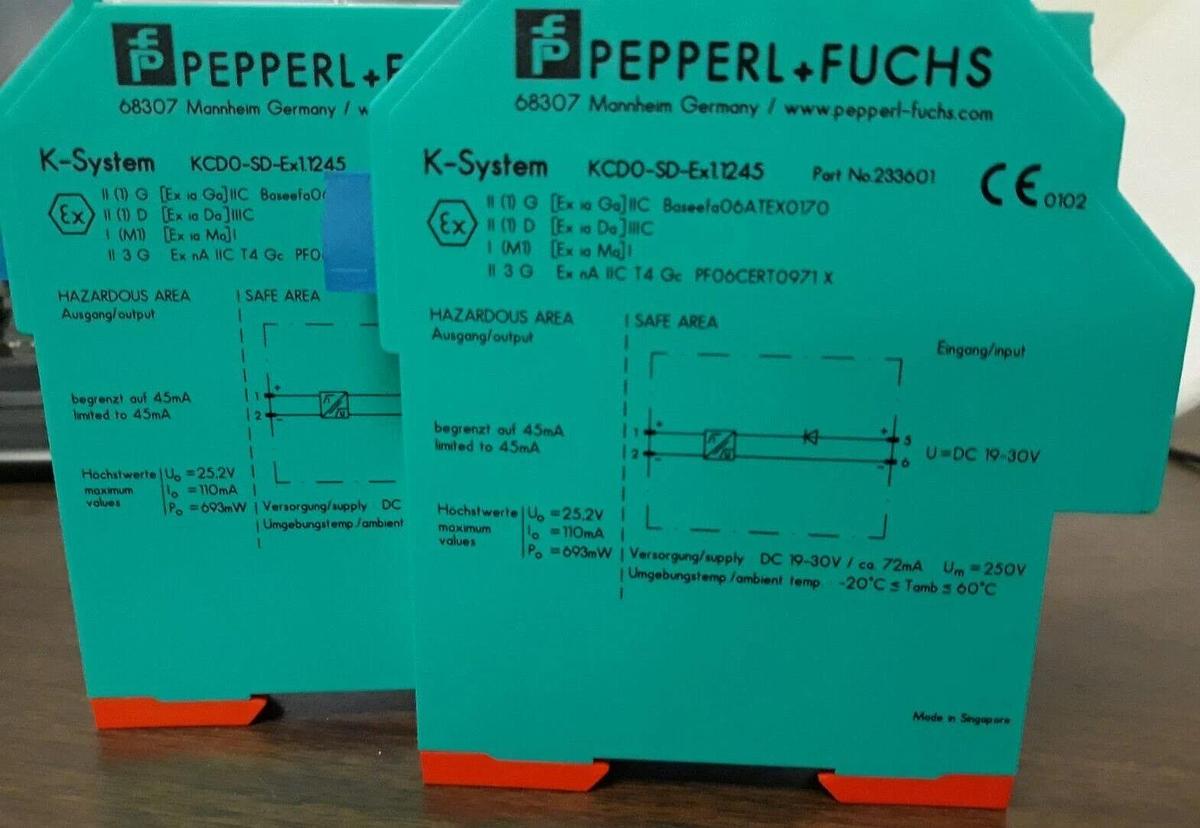 PEPPERL+F
68307 Mannheim Germany / w
K-System KCD0-SD-Ex1.1245
Ex
II (1) G [Ex ia Ga]IIC Baseefa06
II (1) D [Ex ia Da]IIIC
I (M1) [Ex ia Ma]I
II 3 G Ex nA IIC T4 Gc PF0
HAZARDOUS AREA SAFE AREA
Ausgang/output
begrenzt auf 45mA
limited to 45mA
1 +
2 -
Höchstwerte Uo =25,2V
maximum Io =110mA
values Po =693mW
Versorgung/supply DC
Umgebungstemp./ambient
PEPPERL+FUCHS
68307 Mannheim Germany / www.pepperl-fuchs.com
K-System KCD0-SD-Ex1.1245 Part No.233601
CE 0102
Ex
II (1) G [Ex ia Ga]IIC Baseefa06ATEX0170
II (1) D [Ex ia Da]IIIC
I (M1) [Ex ia Ma]I
II 3 G Ex nA IIC T4 Gc PF06CERT0971 X
HAZARDOUS AREA SAFE AREA
Ausgang/output Eingang/input
begrenzt auf 45mA
limited to 45mA
1 + + 5
2 - - 6
U=DC 19-30V
Höchstwerte Uo =25,2V
maximum Io =110mA
values Po =693mW
Versorgung/supply DC 19-30V / ca. 72mA Um =250V
Umgebungstemp./ambient temp. -20°C ≤ Tamb ≤ 60°C
Made in Singapore